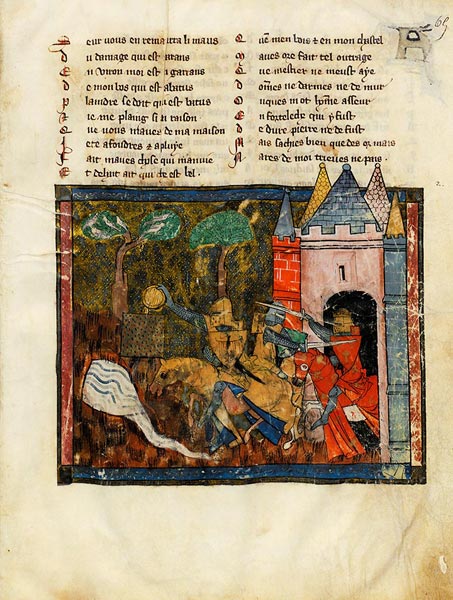 S eur vous en remaurra li maus
D u damage qui est parans
E nviron moi est li garans
D e mon bos qui est abatus
P laindre se doit qui est batus
E t je me plaing si ai raison
Q ue vous maues de ma maison
I ete a foudres et a pluye
F ait maues chose qui manuie
E t dehait ait qui che est bel
Q uen men bois et en mon chastel
M aues ore fait tel outrage
Q ue mestier ne meust aye
D ommes ne darmes ne de mur
O nques mot homme asseur
E n forteleche qui y fust
D e dure pierre ne de fust
M ais sachies bien que des or mais
N ares de moi trieues ne pais